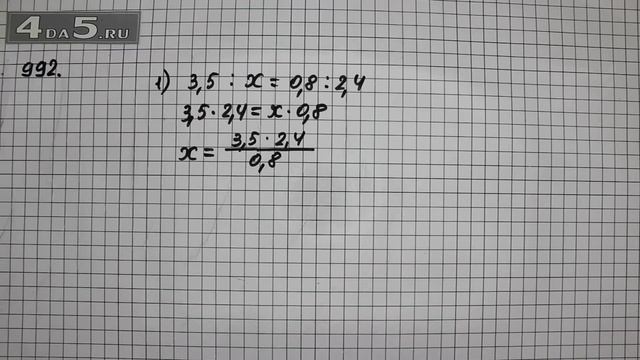 4 DA 5.RU
992.
1) 3,5 : x = 0,8 : 2,4
3,5 · 2,4 = x · 0,8
x = 3,5 · 2,4
0,8